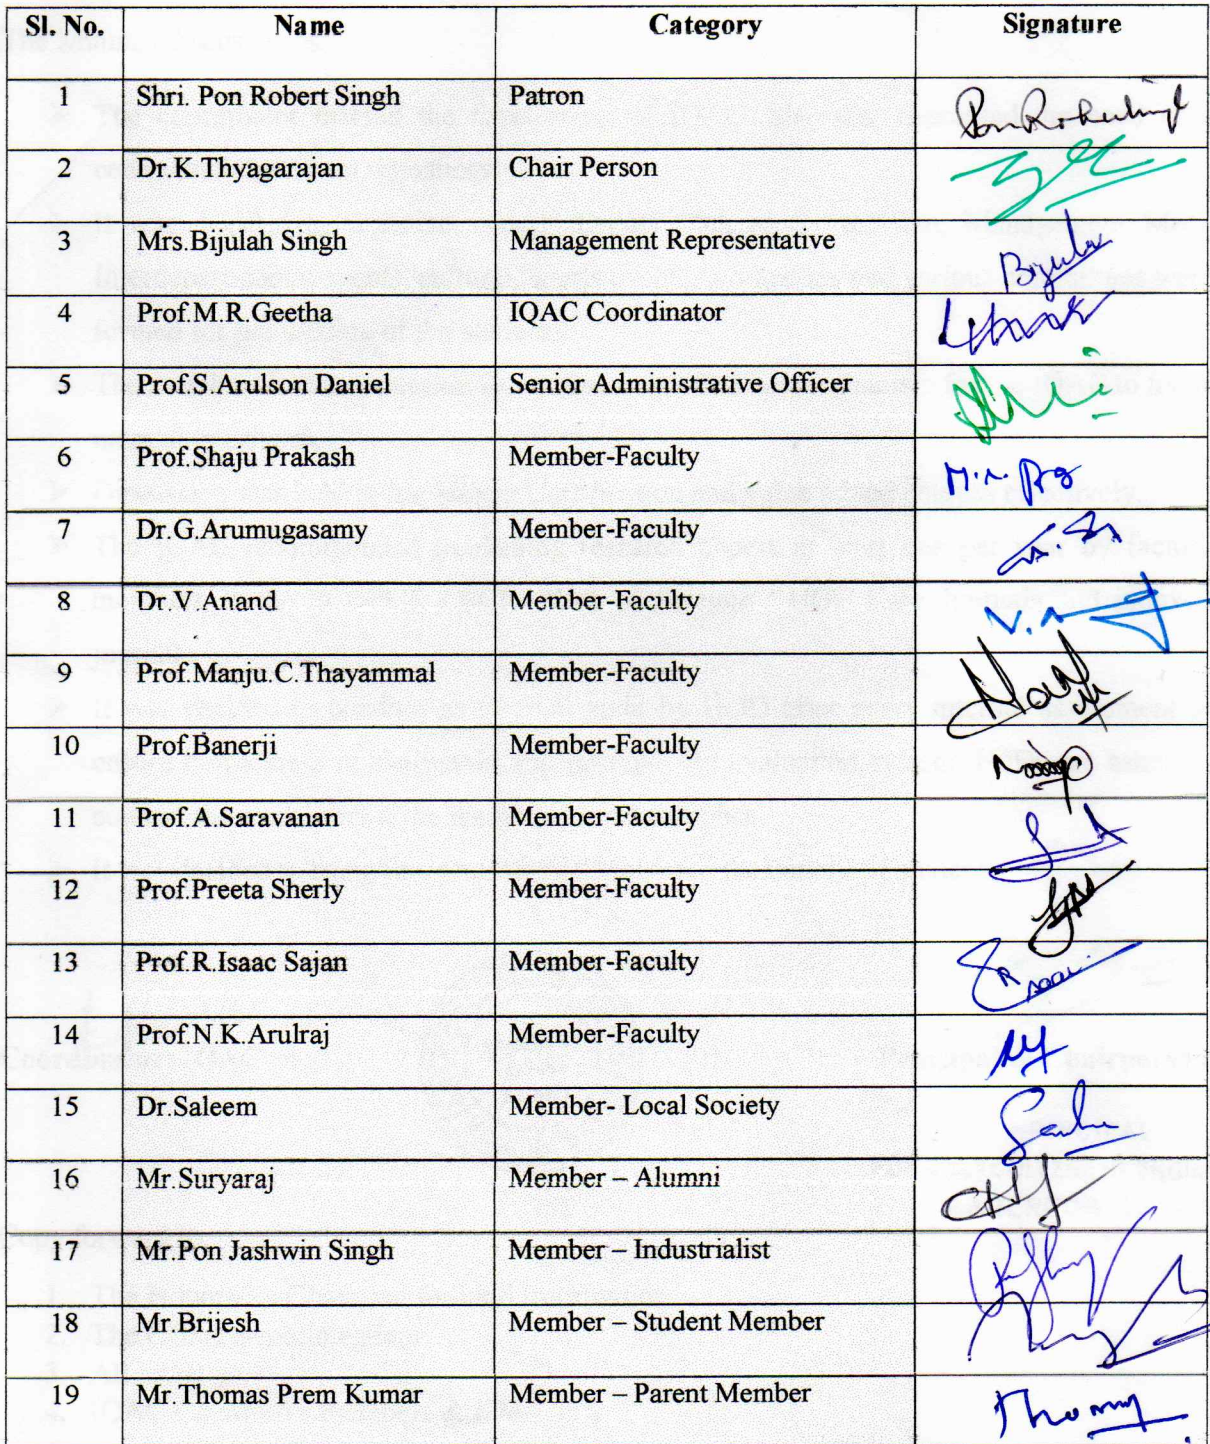 Sl. No. Name Category Signature
1 Shri. Pon Robert Singh Patron
2 Dr.K.Thyagarajan Chair Person
3 Mrs.Bijulah Singh Management Representative Bijulah
4 Prof.M.R.Geetha IQAC Coordinator
5 Prof.S.Arulson Daniel Senior Administrative Officer
6 Prof.Shaju Prakash Member-Faculty
7 Dr.G.Arumugasamy Member-Faculty
8 Dr.V.Anand Member-Faculty
9 Prof.Manju.C.Thayammal Member-Faculty
10 Prof.Banerji Member-Faculty
11 Prof.A.Saravanan Member-Faculty
12 Prof.Preeta Sherly Member-Faculty
13 Prof.R.Isaac Sajan Member-Faculty
14 Prof.N.K.Arulraj Member-Faculty
15 Dr.Saleem Member- Local Society
16 Mr.Suryaraj Member – Alumni
17 Mr.Pon Jashwin Singh Member – Industrialist
18 Mr.Brijesh Member – Student Member
19 Mr.Thomas Prem Kumar Member – Parent Member